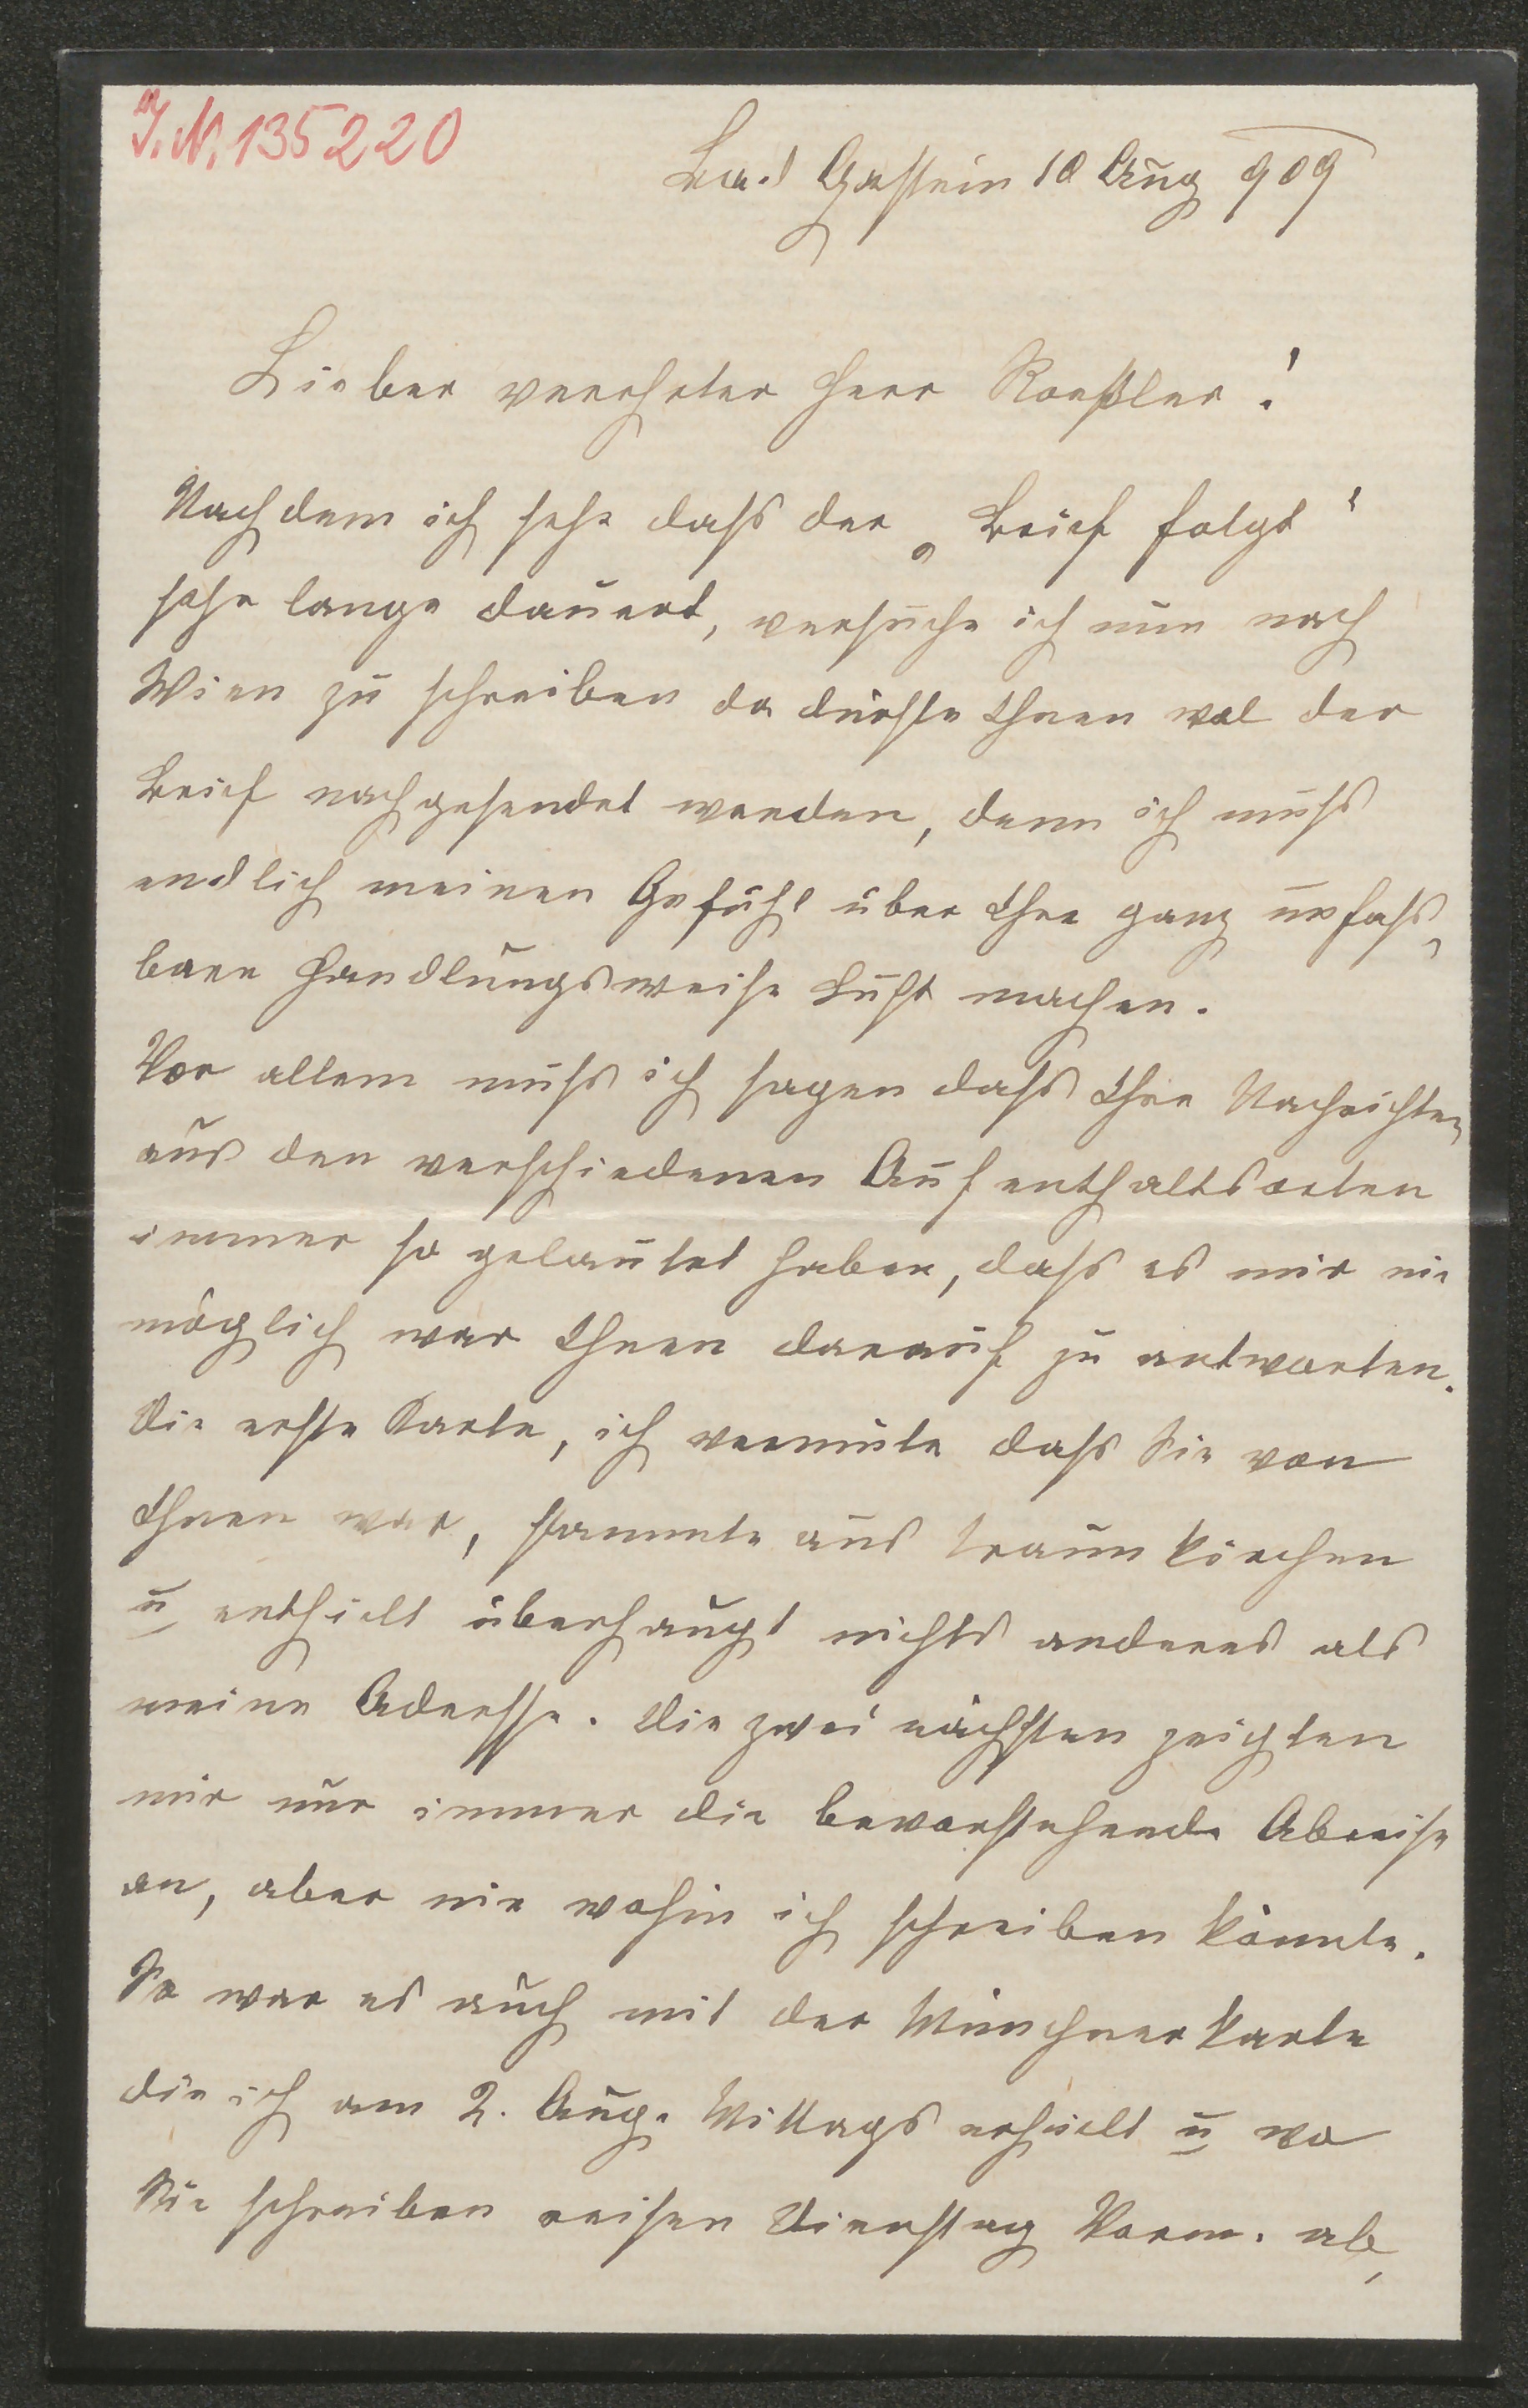 J.N. 135220
Bad Gastein 10 Aug 909
Lieber verehrter Herr Roeßler!
Nachdem ich sehe dass der „Brief folgt“
sehr lange dauert, versuche ich nun nach
Wien zu schreiben da dürfte Ihnen wol der
Brief nachgesendet werden, denn ich muss
endlich meinen Gefühl über Ihre ganz unfass„
bare Handlungsweise Luft machen.
Vor allem muss ich sagen dass Ihre Nachrichten
aus den verschiedenen Aufenthaltsorten
immer so gelautet haben, dass es mir nie
möglich war Ihnen darauf zu antworten.
Die erste Karte, ich vermute dass Sie von
Ihnen war, stammte aus Traunkirchen
u enthielt überhaupt nichts anderes als
meine Adresse. Die zwei nächsten zeigten
mir nur immer die bevorstehende Abreise
an, aber nie wohin ich schreiben könnte.
So war es auch mit der Münchnerkarte
die ich am 2. Aug. Mittags erhielt u wo
Sie schreiben reisen Dienstag Vorm. ab,